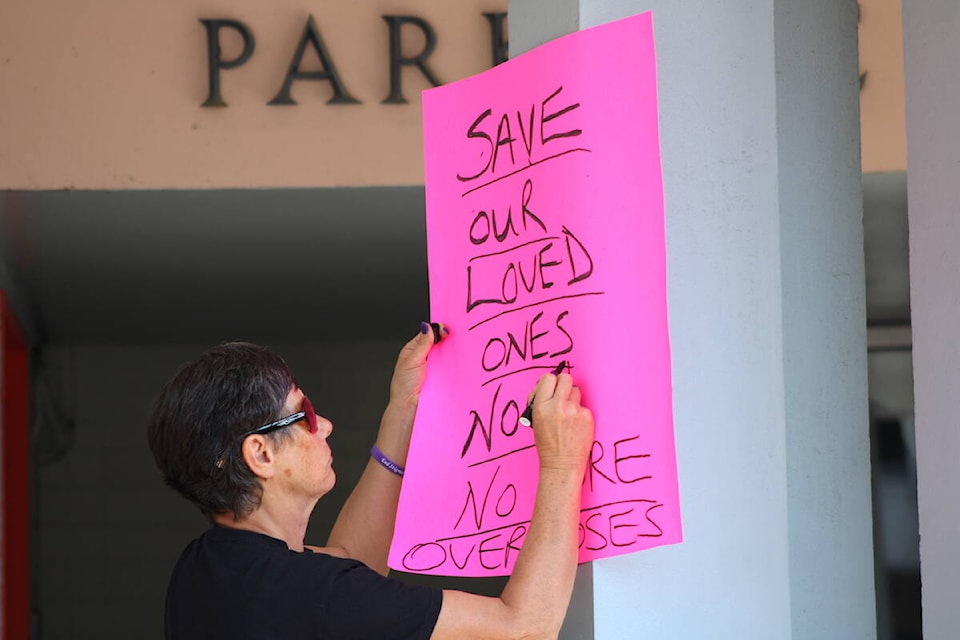 PAR
SAVE
OUR
LOVED
ONES
NO
NO RE
OVER OSES